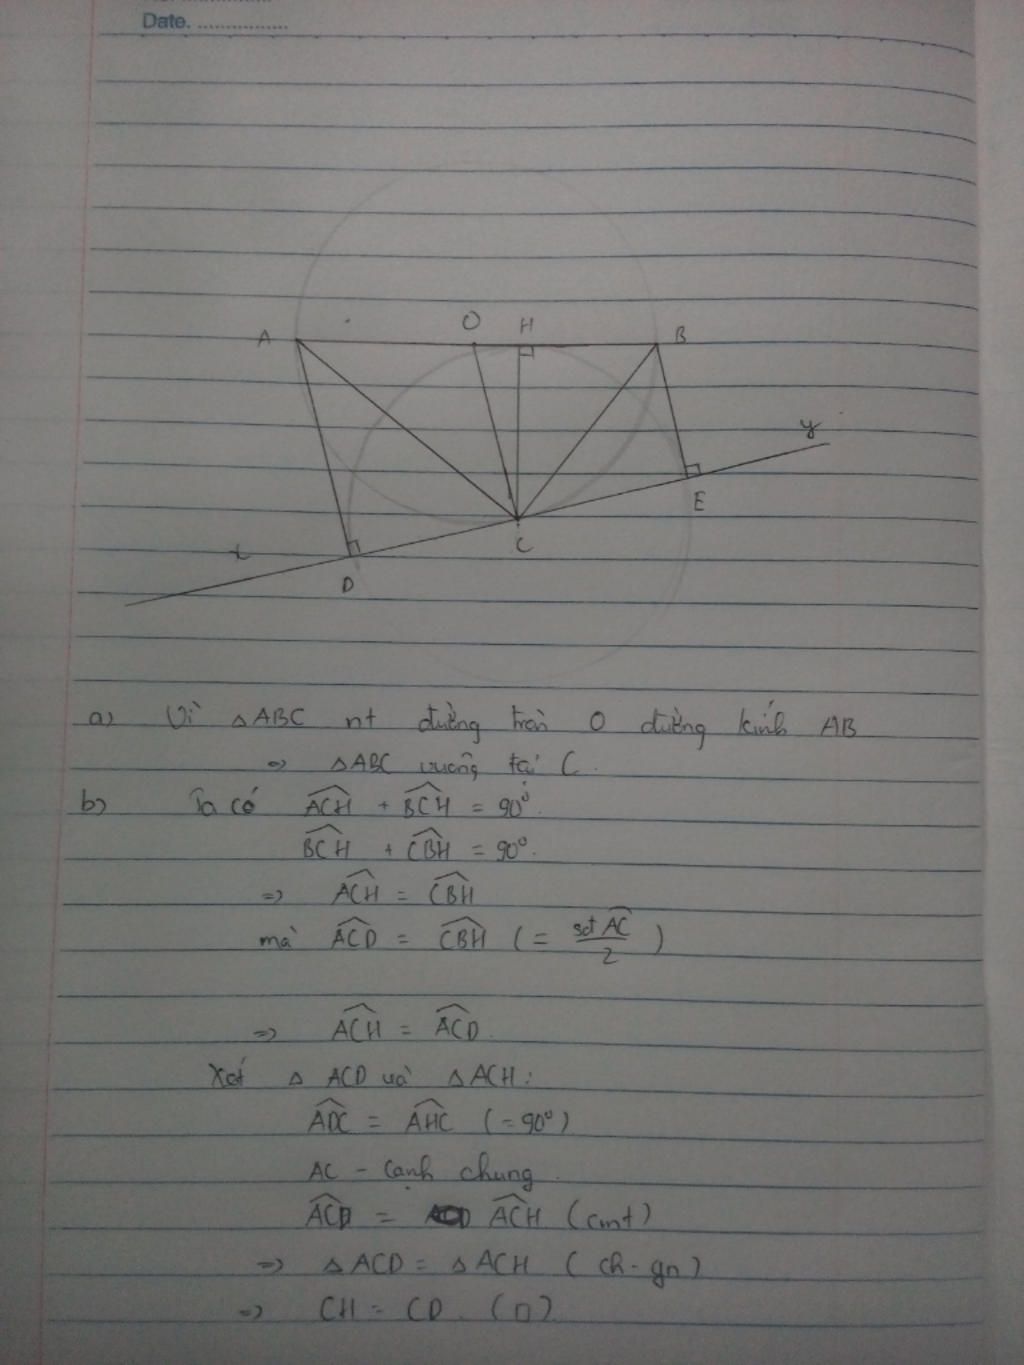 Date. ................
A O H B
y
E
x C
D
a) Vì △ABC nt đường tròn O đường kính AB
=> △ABC vuông tại C.
b) Ta có ACH + BCH = 90°.
BCH + CBH = 90°.
=> ACH = CBH
mà ACD = CBH (= sđ AC / 2)
=> ACH = ACD.
Xét △ ACD và △ ACH:
ADC = AHC (= 90°)
AC - cạnh chung.
ACD = ACH (cmt)
=> △ ACD = △ ACH (ch - gn)
=> CH = CD. (1)